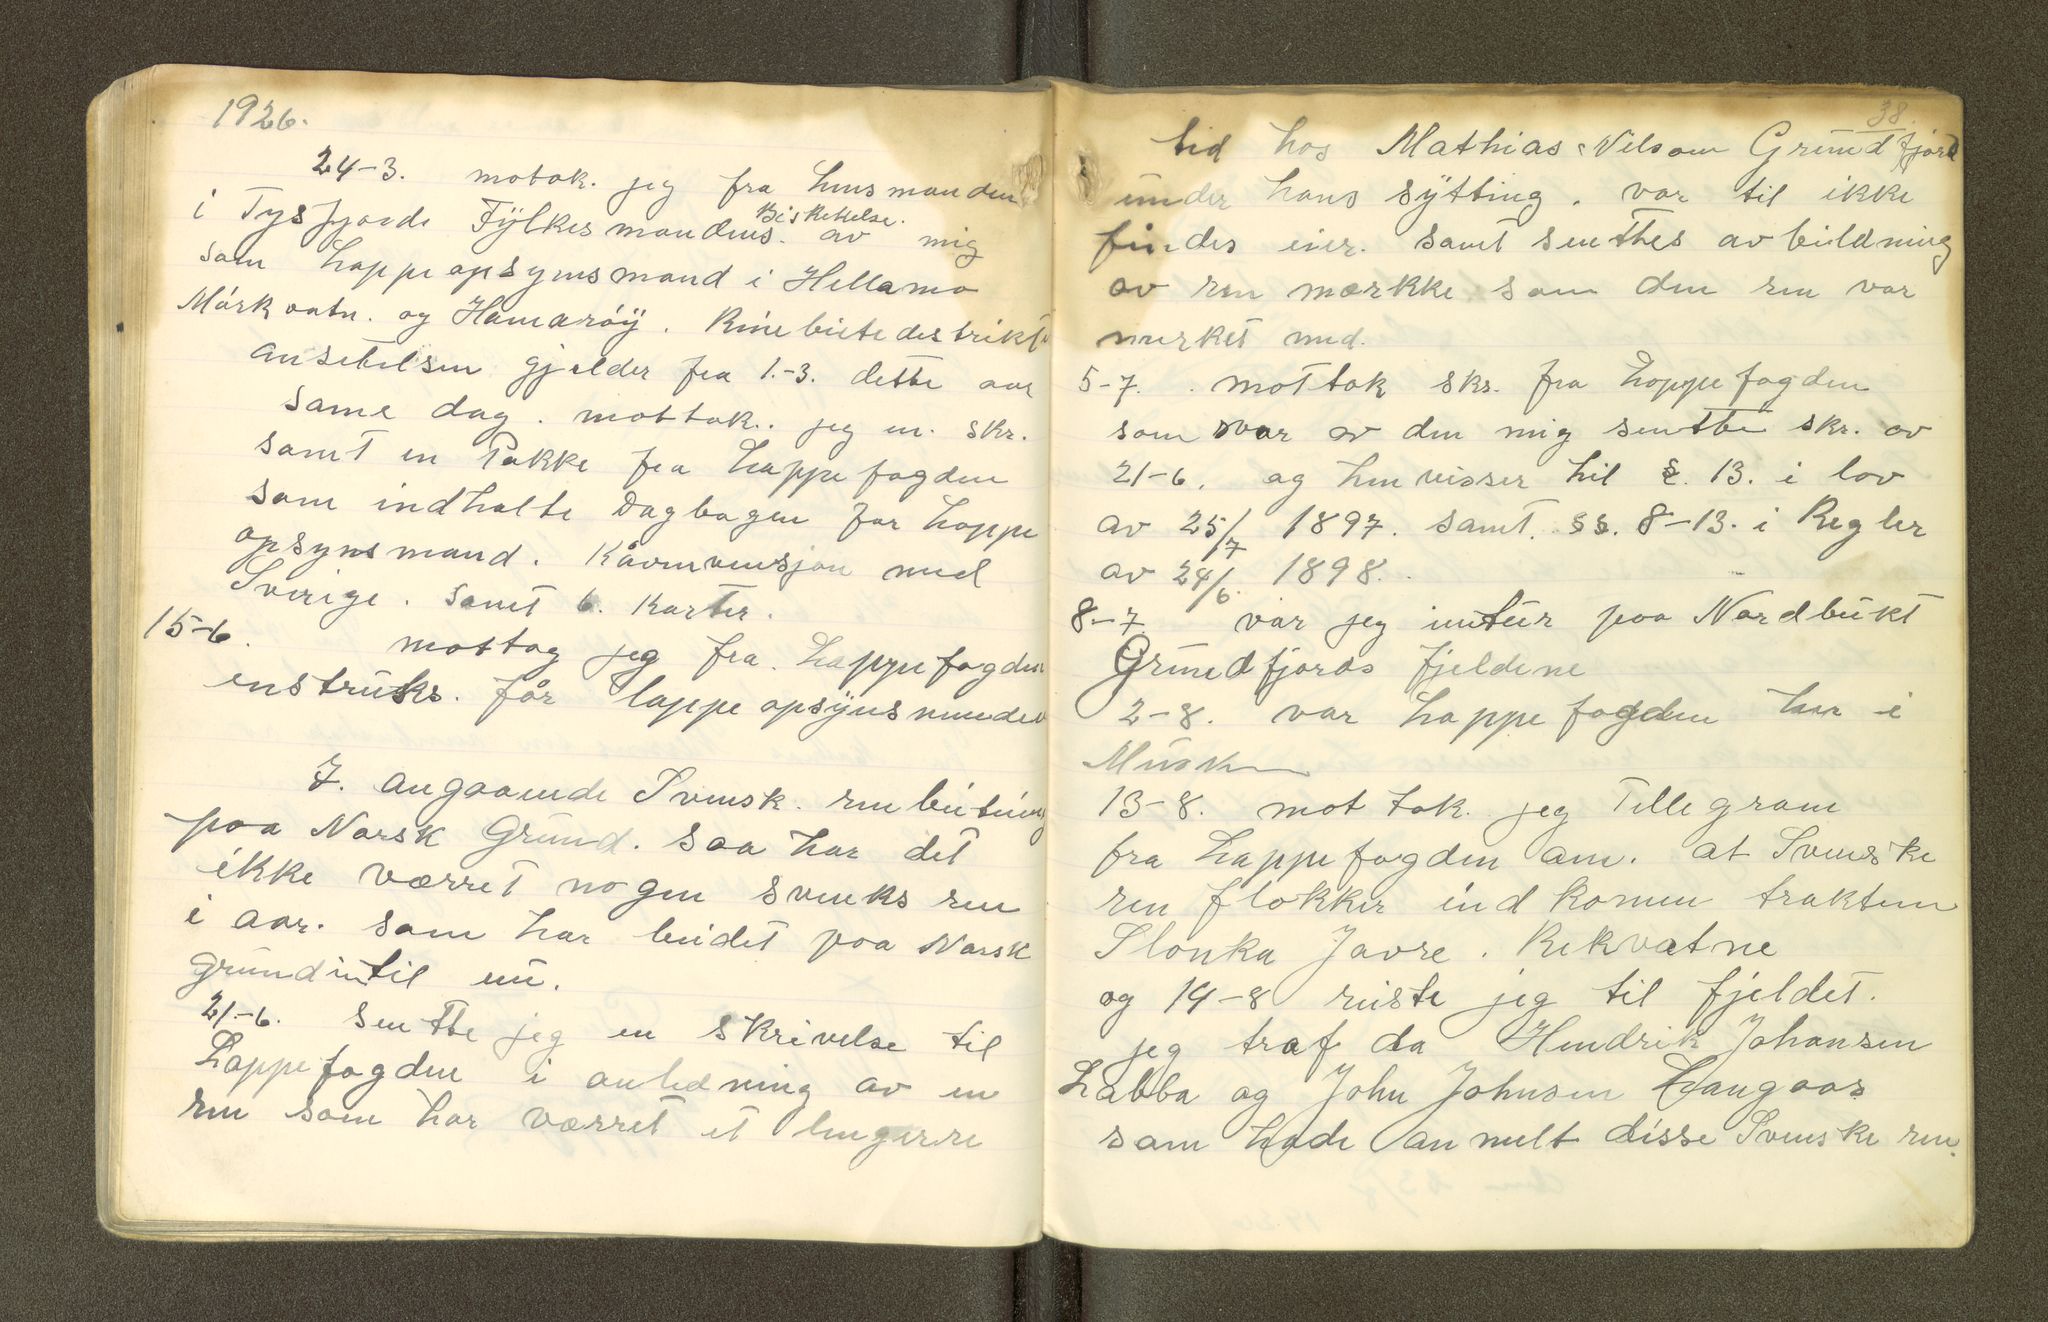 1926.
24-3. motok. jeg fra lensmanden
i Tysfjorde Fylkesmandens. Biskekelse. av mig
som Lappeopsynsmand i Hellamo
Mårkvatn. og Hamarøy. Rinebiete destrikte
ansetelsen gjelder fra 1.-3. dette aar
same dag. mottok. jeg en. skr.
samt en Pakke fra Lappefogden
som indholte Dagbogen for Lappe
opsynsmand. Kåvenvensjon med
Sverige. samt 6. Karter.
15-6. mottog jeg fra. Lappefogden
enstruks. får lappeopsynsmenden
7. angaaende Svensk. renbeiteing
paa Norsk Grund. saa har det
ikke værret nogen svenks ren
i aar. som har beidet paa Norsk
grundintil nu.
21-6. sentte jeg en skrivelse til
Lappefogden i anledning av en
ren som har værret et lengerre
38.
tid hos Mathias Nilsen Grundfjord
under hans sytting. vor til ikke
findes eier. samt senthes avbildning
av ren mærkke som den ren var
merket med.
5-7. mottok skr. fra Lappefogden
som svar av den mig sentte skr. av
21-6. og henvisser til §. 13. i lov
av 25/7 1897. samt. §§. 8-13. i Regler
av 24/6. 1898.
8-7 var jeg entur paa Nordbukt
Grundfjords fjeldene
2-8. var Lappefogden her i
Musken
13-8. mottok. jeg Tellegram
fra Lappefogden om. at Svenske
ren flokker indkomen trakten
Slonka Javre. Rekvatne
og 14-8 reiste jeg til fjeldet.
jeg traf da Hendrik Johansen
Labba og John Johnsen Langaas
som hade anmelt disse Svenske ren.